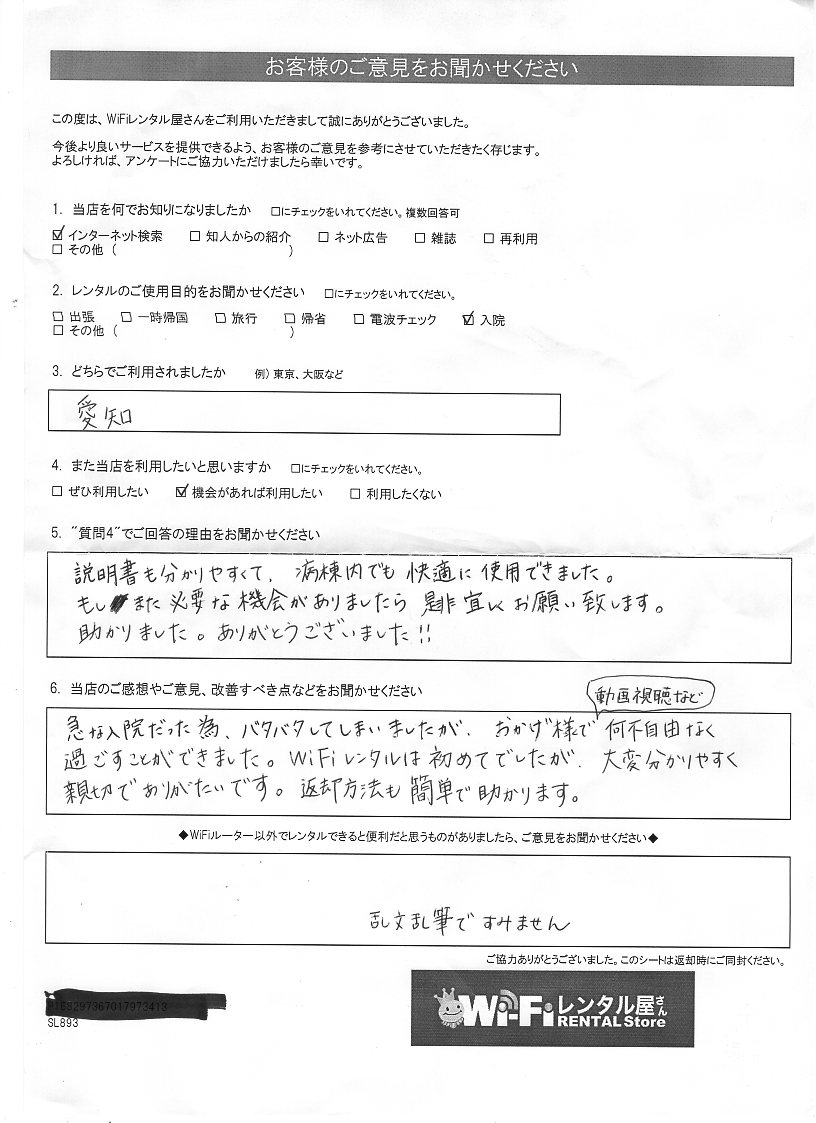 お客様のご意見をお聞かせください
この度は、WiFiレンタル屋さんをご利用いただきまして誠にありがとうございました。
今後より良いサービスを提供できるよう、お客様のご意見を参考にさせていただきたく存じます。
よろしければ、アンケートにご協力いただけましたら幸いです。
1. 当店を何でお知りになりましたか □にチェックをいれてください。複数回答可
☑ インターネット検索 □ 知人からの紹介 □ ネット広告 □ 雑誌 □ 再利用
□ その他 ( )
2. レンタルのご使用目的をお聞かせください □にチェックをいれてください。
□ 出張 □ 一時帰国 □ 旅行 □ 帰省 □ 電波チェック ☑ 入院
□ その他 ( )
3. どちらでご利用されましたか 例) 東京、大阪など
愛知
4. また当店を利用したいと思いますか □にチェックをいれてください。
□ ぜひ利用したい ☑ 機会があれば利用したい □ 利用したくない
5. "質問4"でご回答の理由をお聞かせください
説明書も分かりやすくて、病棟内でも快適に使用できました。
もしまた必要な機会がありましたら是非宜しくお願い致します。
助かりました。ありがとうございました!!
6. 当店のご感想やご意見、改善すべき点などをお聞かせください
動画視聴など
急な入院だった為、バタバタしてしまいましたが、おかげ様で何不自由なく
過ごすことができました。WiFiレンタルは初めてでしたが、大変分かりやすく
親切でありがたいです。返却方法も簡単で助かります。
◆WiFiルーター以外でレンタルできると便利だと思うものがありましたら、ご意見をお聞かせください◆
乱文乱筆ですみません
ご協力ありがとうございました。このシートは返却時にご同封ください。
SL893
Wi-Fiレンタル屋さん
RENTAL Store